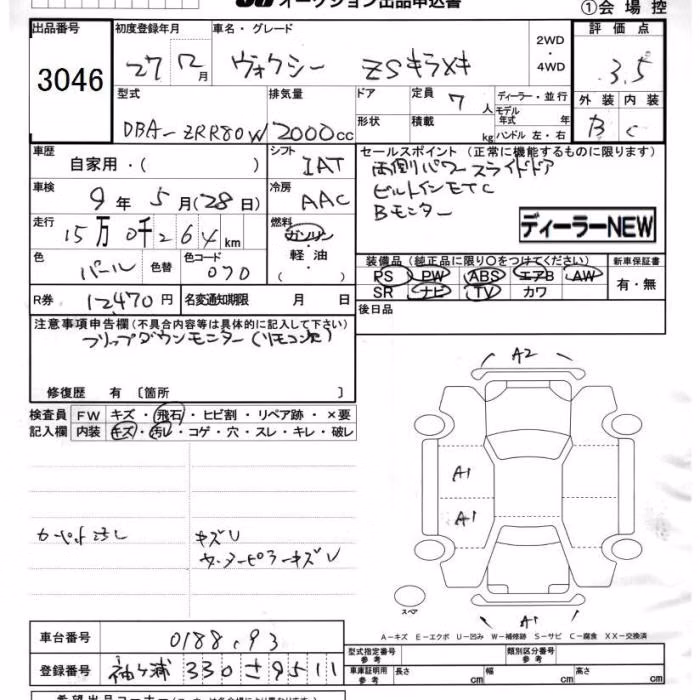 オークション出品申込書
①会場控
出品番号 初度登録年月 車名・グレード 2WD・4WD 評価点
3046 27 12月 ヴォクシー ZSキラメキ 3.5
型式 排気量 ドア 定員 7人 ディーラー・並行 外装 内装
DBA-ZRR80W 2000cc 形状 積載 kg モデル年式 年 ハンドル 左・右 B C
車歴 自家用・( ) シフト IAT セールスポイント(正常に機能するものに限ります)
車検 9年5月(28日) 冷房 AAC 両側パワースライドドア
ビルトインETC
走行 15万0千264km 燃料 ガソリン・軽油・( ) Bモニター
ディーラーNEW
色 パール 色替 色コード 070
装備品(純正品に限り○をつけてください) 新車保証書
PS PW ABS エアB AW 有・無
SR ナビ TV カワ
R券 12470円 名変通知期限 月 日 後日品
注意事項申告欄(不具合内容等は具体的に記入して下さい)
フリップダウンモニター(リモコン欠)
修復歴 有〔箇所 〕
検査員 FW キズ・飛石・ヒビ割・リペア跡・×要
記入欄 内装 キズ・汚レ・コゲ・穴・スレ・キレ・破レ
A2
A1
A1
キズU
A1
スペア
A-キズ E-エクボ U-凹み W-補修跡 S-サビ C-腐食 XX-交換済
車台番号 0188693
型式指定番号 参考 類別区分番号 参考
登録番号 袖ヶ浦 330 さ 9511
車庫証明用 参考 長さ cm 幅 cm 高さ cm